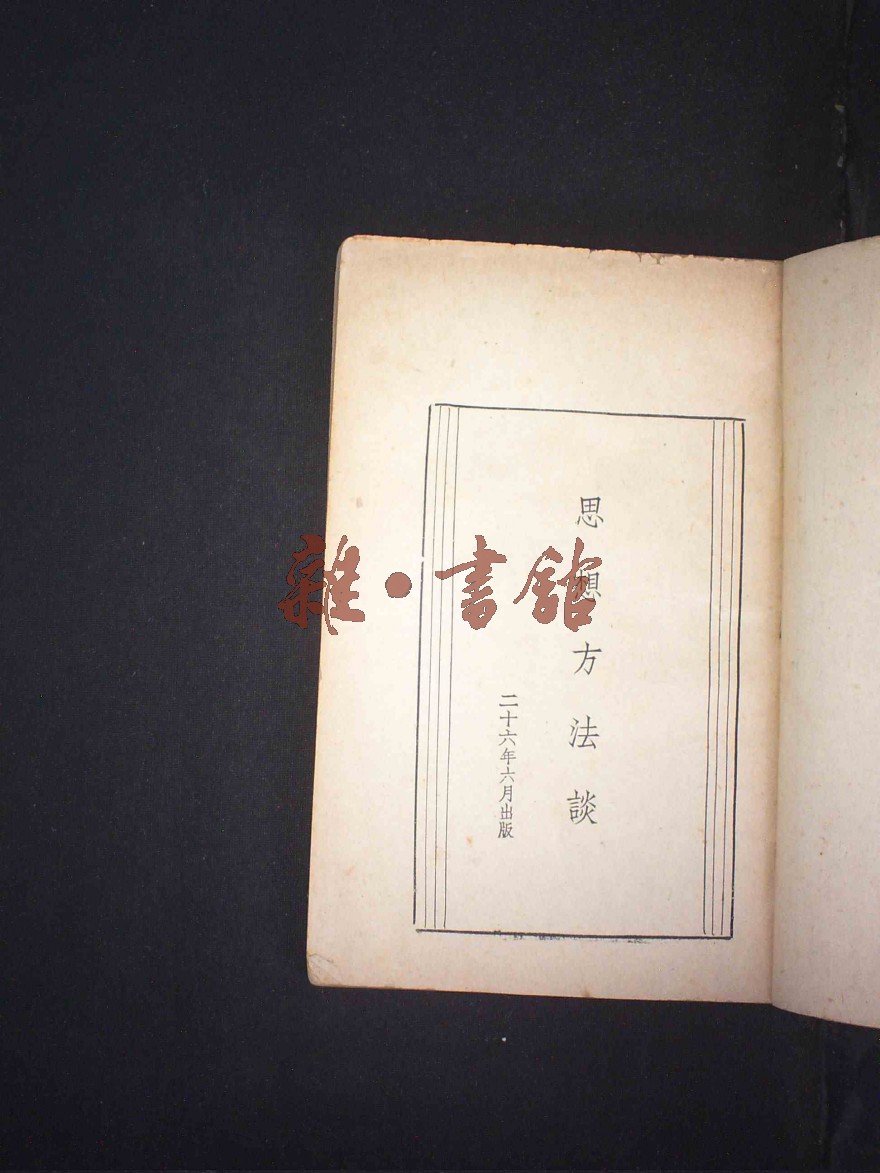 思想方法談
二十六年六月出版
雜·書館